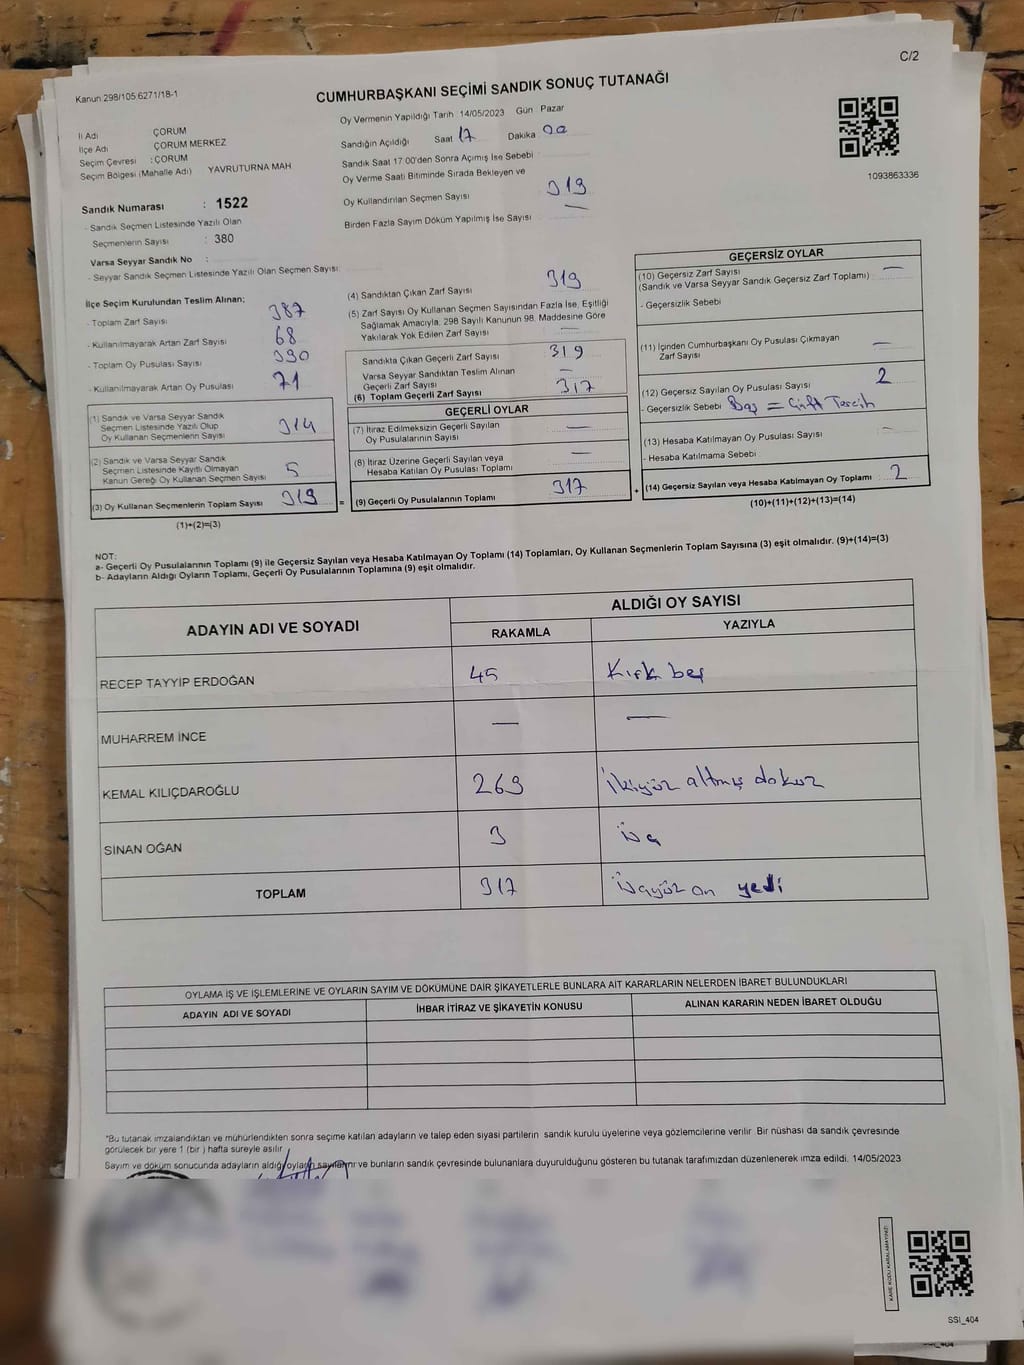 C/2
Kanun 298/105 6271/18-1
CUMHURBAŞKANI SEÇİMİ SANDIK SONUÇ TUTANAĞI
İl Adı ÇORUM
İlçe Adı ÇORUM MERKEZ
Seçim Çevresi : ÇORUM
Seçim Bölgesi (Mahalle Adı) YAVRUTURNA MAH
Sandık Numarası : 1522
- Sandık Seçmen Listesinde Yazılı Olan
Seçmenlerin Sayısı : 380
Varsa Seyyar Sandık No :
- Seyyar Sandık Seçmen Listesinde Yazılı Olan Seçmen Sayısı:
Oy Vermenin Yapıldığı Tarih : 14/05/2023 Gün Pazar
Sandığın Açıldığı Saat 17 Dakika 00
Sandık Saat 17.00'den Sonra Açımış İse Sebebi :
Oy Verme Saati Bitiminde Sırada Bekleyen ve
Oy Kullandırılan Seçmen Sayısı 319
Birden Fazla Sayım Döküm Yapılmış İse Sayısı —
1093863336
İlçe Seçim Kurulundan Teslim Alınan;
- Toplam Zarf Sayısı 387
- Kullanılmayarak Artan Zarf Sayısı 68
- Toplam Oy Pusulası Sayısı 390
- Kullanılmayarak Artan Oy Pusulası 71
(1) Sandık ve Varsa Seyyar Sandık
Seçmen Listesinde Yazılı Olup
Oy Kullanan Seçmenlerin Sayısı 314
(2) Sandık ve Varsa Seyyar Sandık
Seçmen Listesinde Kayıtlı Olmayan
Kanun Gereği Oy Kullanan Seçmen Sayısı 5
(3) Oy Kullanan Seçmenlerin Toplam Sayısı 319 =
(1)+(2)=(3)
(4) Sandıktan Çıkan Zarf Sayısı 319
(5) Zarf Sayısı Oy Kullanan Seçmen Sayısından Fazla İse, Eşitliği
Sağlamak Amacıyla, 298 Sayılı Kanunun 98. Maddesine Göre
Yakılarak Yok Edilen Zarf Sayısı —
Sandıkta Çıkan Geçerli Zarf Sayısı 319
Varsa Seyyar Sandıktan Teslim Alınan
Geçerli Zarf Sayısı —
(6) Toplam Geçerli Zarf Sayısı 317
GEÇERLİ OYLAR
(7) İtiraz Edilmeksizin Geçerli Sayılan
Oy Pusulalarının Sayısı —
(8) İtiraz Üzerine Geçerli Sayılan veya
Hesaba Katılan Oy Pusulası Toplamı —
(9) Geçerli Oy Pusulalarının Toplamı 317 +
GEÇERSİZ OYLAR
(10) Geçersiz Zarf Sayısı —
(Sandık ve Varsa Seyyar Sandık Geçersiz Zarf Toplamı)
- Geçersizlik Sebebi
(11) İçinden Cumhurbaşkanı Oy Pusulası Çıkmayan
Zarf Sayısı —
(12) Geçersiz Sayılan Oy Pusulası Sayısı 2
- Geçersizlik Sebebi Boş = Çift Tercih
(13) Hesaba Katılmayan Oy Pusulası Sayısı —
- Hesaba Katılmama Sebebi
(14) Geçersiz Sayılan veya Hesaba Katılmayan Oy Toplamı 2
(10)+(11)+(12)+(13)=(14)
NOT:
a- Geçerli Oy Pusulalarının Toplamı (9) ile Geçersiz Sayılan veya Hesaba Katılmayan Oy Toplamı (14) Toplamları, Oy Kullanan Seçmenlerin Toplam Sayısına (3) eşit olmalıdır. (9)+(14)=(3)
b- Adayların Aldığı Oyların Toplamı, Geçerli Oy Pusulalarının Toplamına (9) eşit olmalıdır.
ADAYIN ADI VE SOYADI ALDIĞI OY SAYISI
RAKAMLA YAZIYLA
RECEP TAYYIP ERDOĞAN 45 Kırk beş
MUHARREM İNCE — —
KEMAL KILIÇDAROĞLU 269 İkiyüz altmış dokuz
SİNAN OĞAN 3 Üç
TOPLAM 317 Üçyüz on yedi
OYLAMA İŞ VE İŞLEMLERİNE VE OYLARIN SAYIM VE DÖKÜMÜNE DAİR ŞİKAYETLERLE BUNLARA AİT KARARLARIN NELERDEN İBARET BULUNDUKLARI
ADAYIN ADI VE SOYADI İHBAR İTİRAZ VE ŞİKAYETİN KONUSU ALINAN KARARIN NEDEN İBARET OLDUĞU
"Bu tutanak imzalandıktan ve mühürlendikten sonra seçime katılan adayların ve talep eden siyasi partilerin sandık kurulu üyelerine veya gözlemcilerine verilir. Bir nüshası da sandık çevresinde
görülecek bir yere 1 (bir ) hafta süreyle asılır.
Sayım ve döküm sonucunda adayların aldığı oyların sayılarını ve bunların sandık çevresinde bulunanlara duyurulduğunu gösteren bu tutanak tarafımızdan düzenlenerek imza edildi. 14/05/2023
KARE KODU KARALAMAYINIZ!
SSI_404
SSI_404